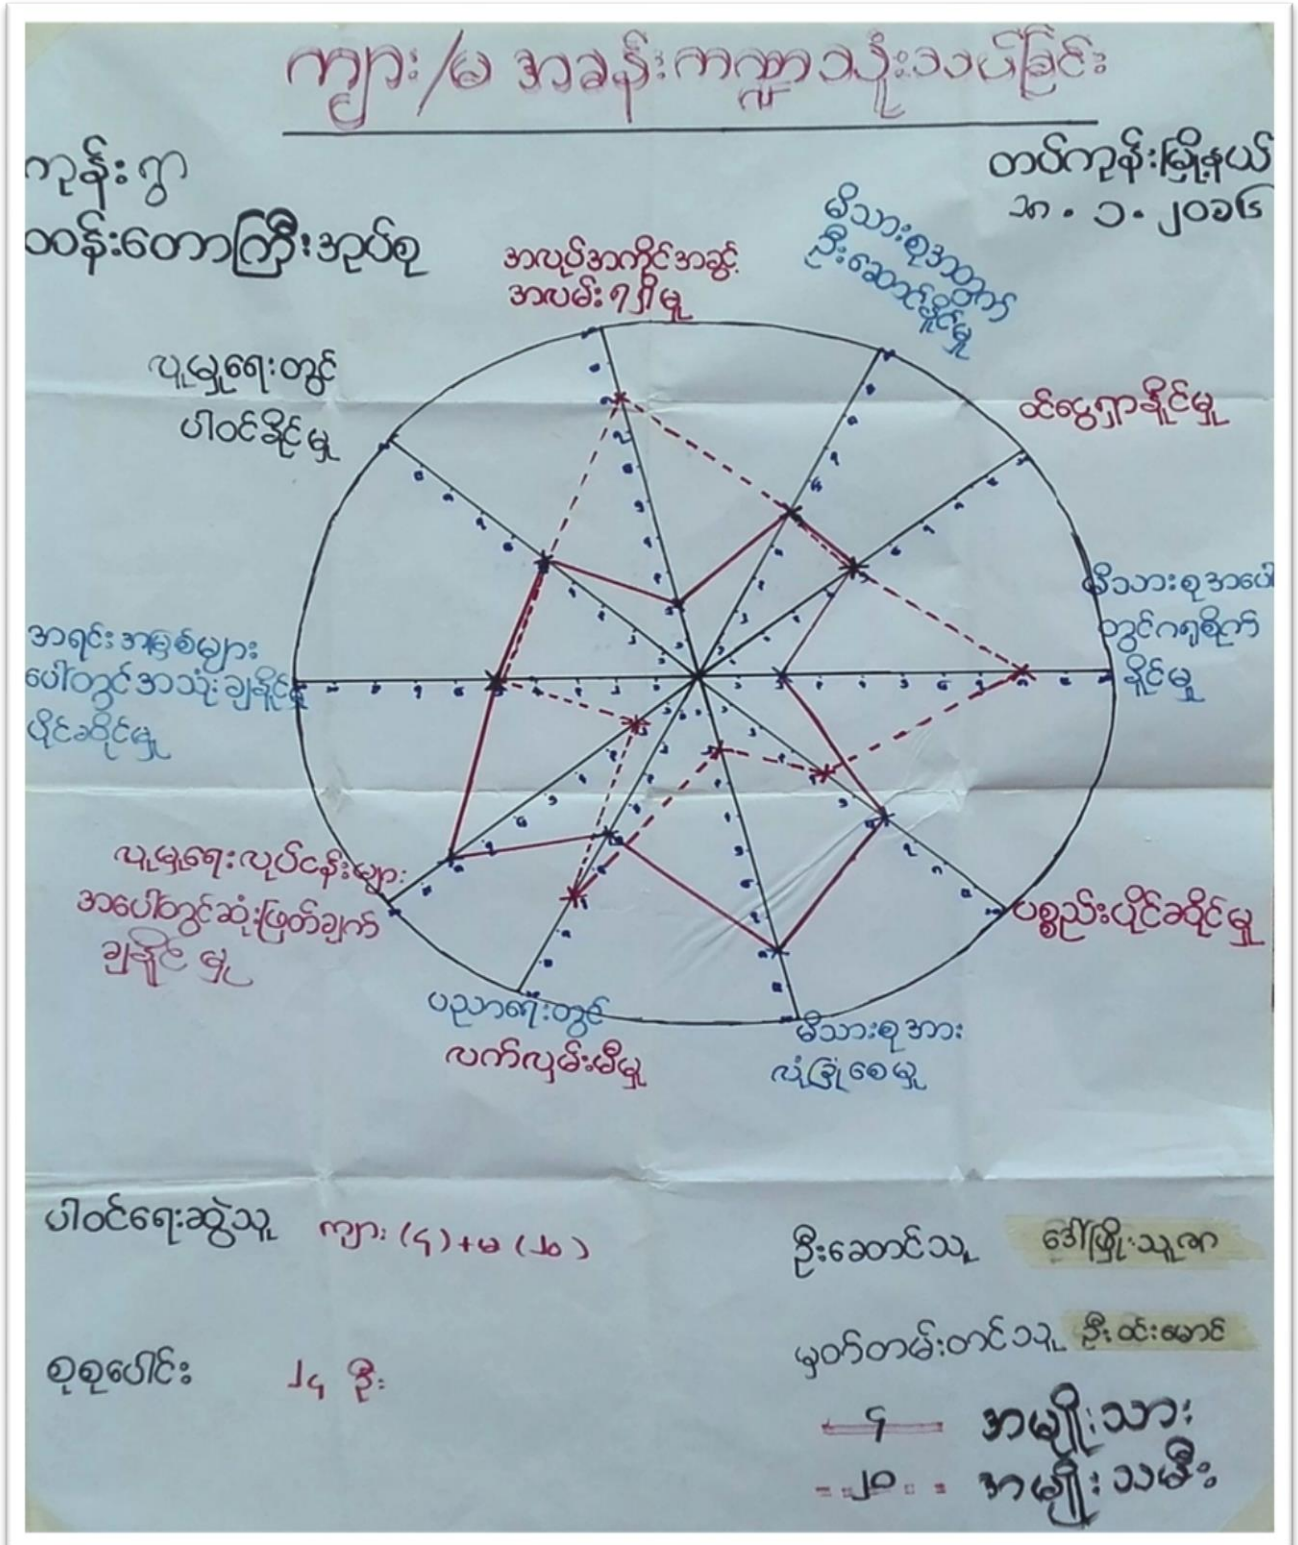 ကျား/မ အခန်းကဏ္ဍသုံးသပ်ခြင်း
ကုန်းရွာ
ထန်းတောကြီးအုပ်စု
တပ်ကုန်းမြို့နယ်
အလုပ်အကိုင်အခွင့်
အလမ်းရရှိမှု
မိသားစုအတွက်
ဦးဆောင်နိုင်မှု
ဝင်ငွေရှာနိုင်မှု
မိသားစုအပေါ်
တွင်ဂရုစိုက်
နိုင်မှု
ပစ္စည်းပိုင်ဆိုင်မှု
မိသားစုအား
လုံခြုံစေမှု
ပညာရေးတွင်
လက်လှမ်းမီမှု
လူမှုရေးလုပ်ငန်းများ
အပေါ်တွင်ဆုံးဖြတ်ချက်
ချနိုင်မှု
အရင်းအမြစ်များ
ပေါ်တွင်အသုံးချနိုင်မှု
ပိုင်ဆိုင်မှု
လူမှုရေးတွင်
ပါဝင်နိုင်မှု
ပါဝင်ရေးဆွဲသူ ကျား (၄)+မ (၂၀)
စုစုပေါင်း ၂၄ ဦး
ဦးဆောင်သူ ဒေါ်ဖြိုးသူဇာ
မှတ်တမ်းတင်သူ ဦးဝင်းမောင်
၄ အမျိုးသား
၂၀ အမျိုးသမီး